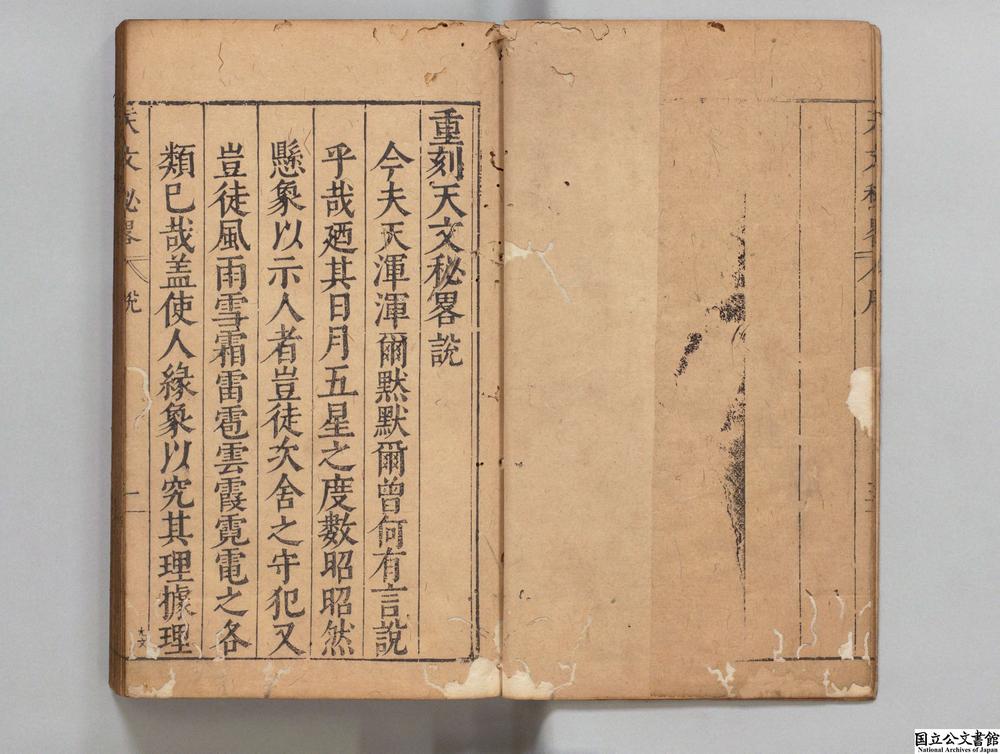 重刻天文秘畧說
今夫天渾渾爾默默爾曾何有言說
乎哉廼其日月五星之度數昭昭然
懸象以示人者豈徒次舍之守犯又
豈徒風雨雪霜雷雹雲霞霓電之各
類已哉盖使人緣象以究其理據理
天文秘畧 說 一
国立公文書館
National Archives of Japan